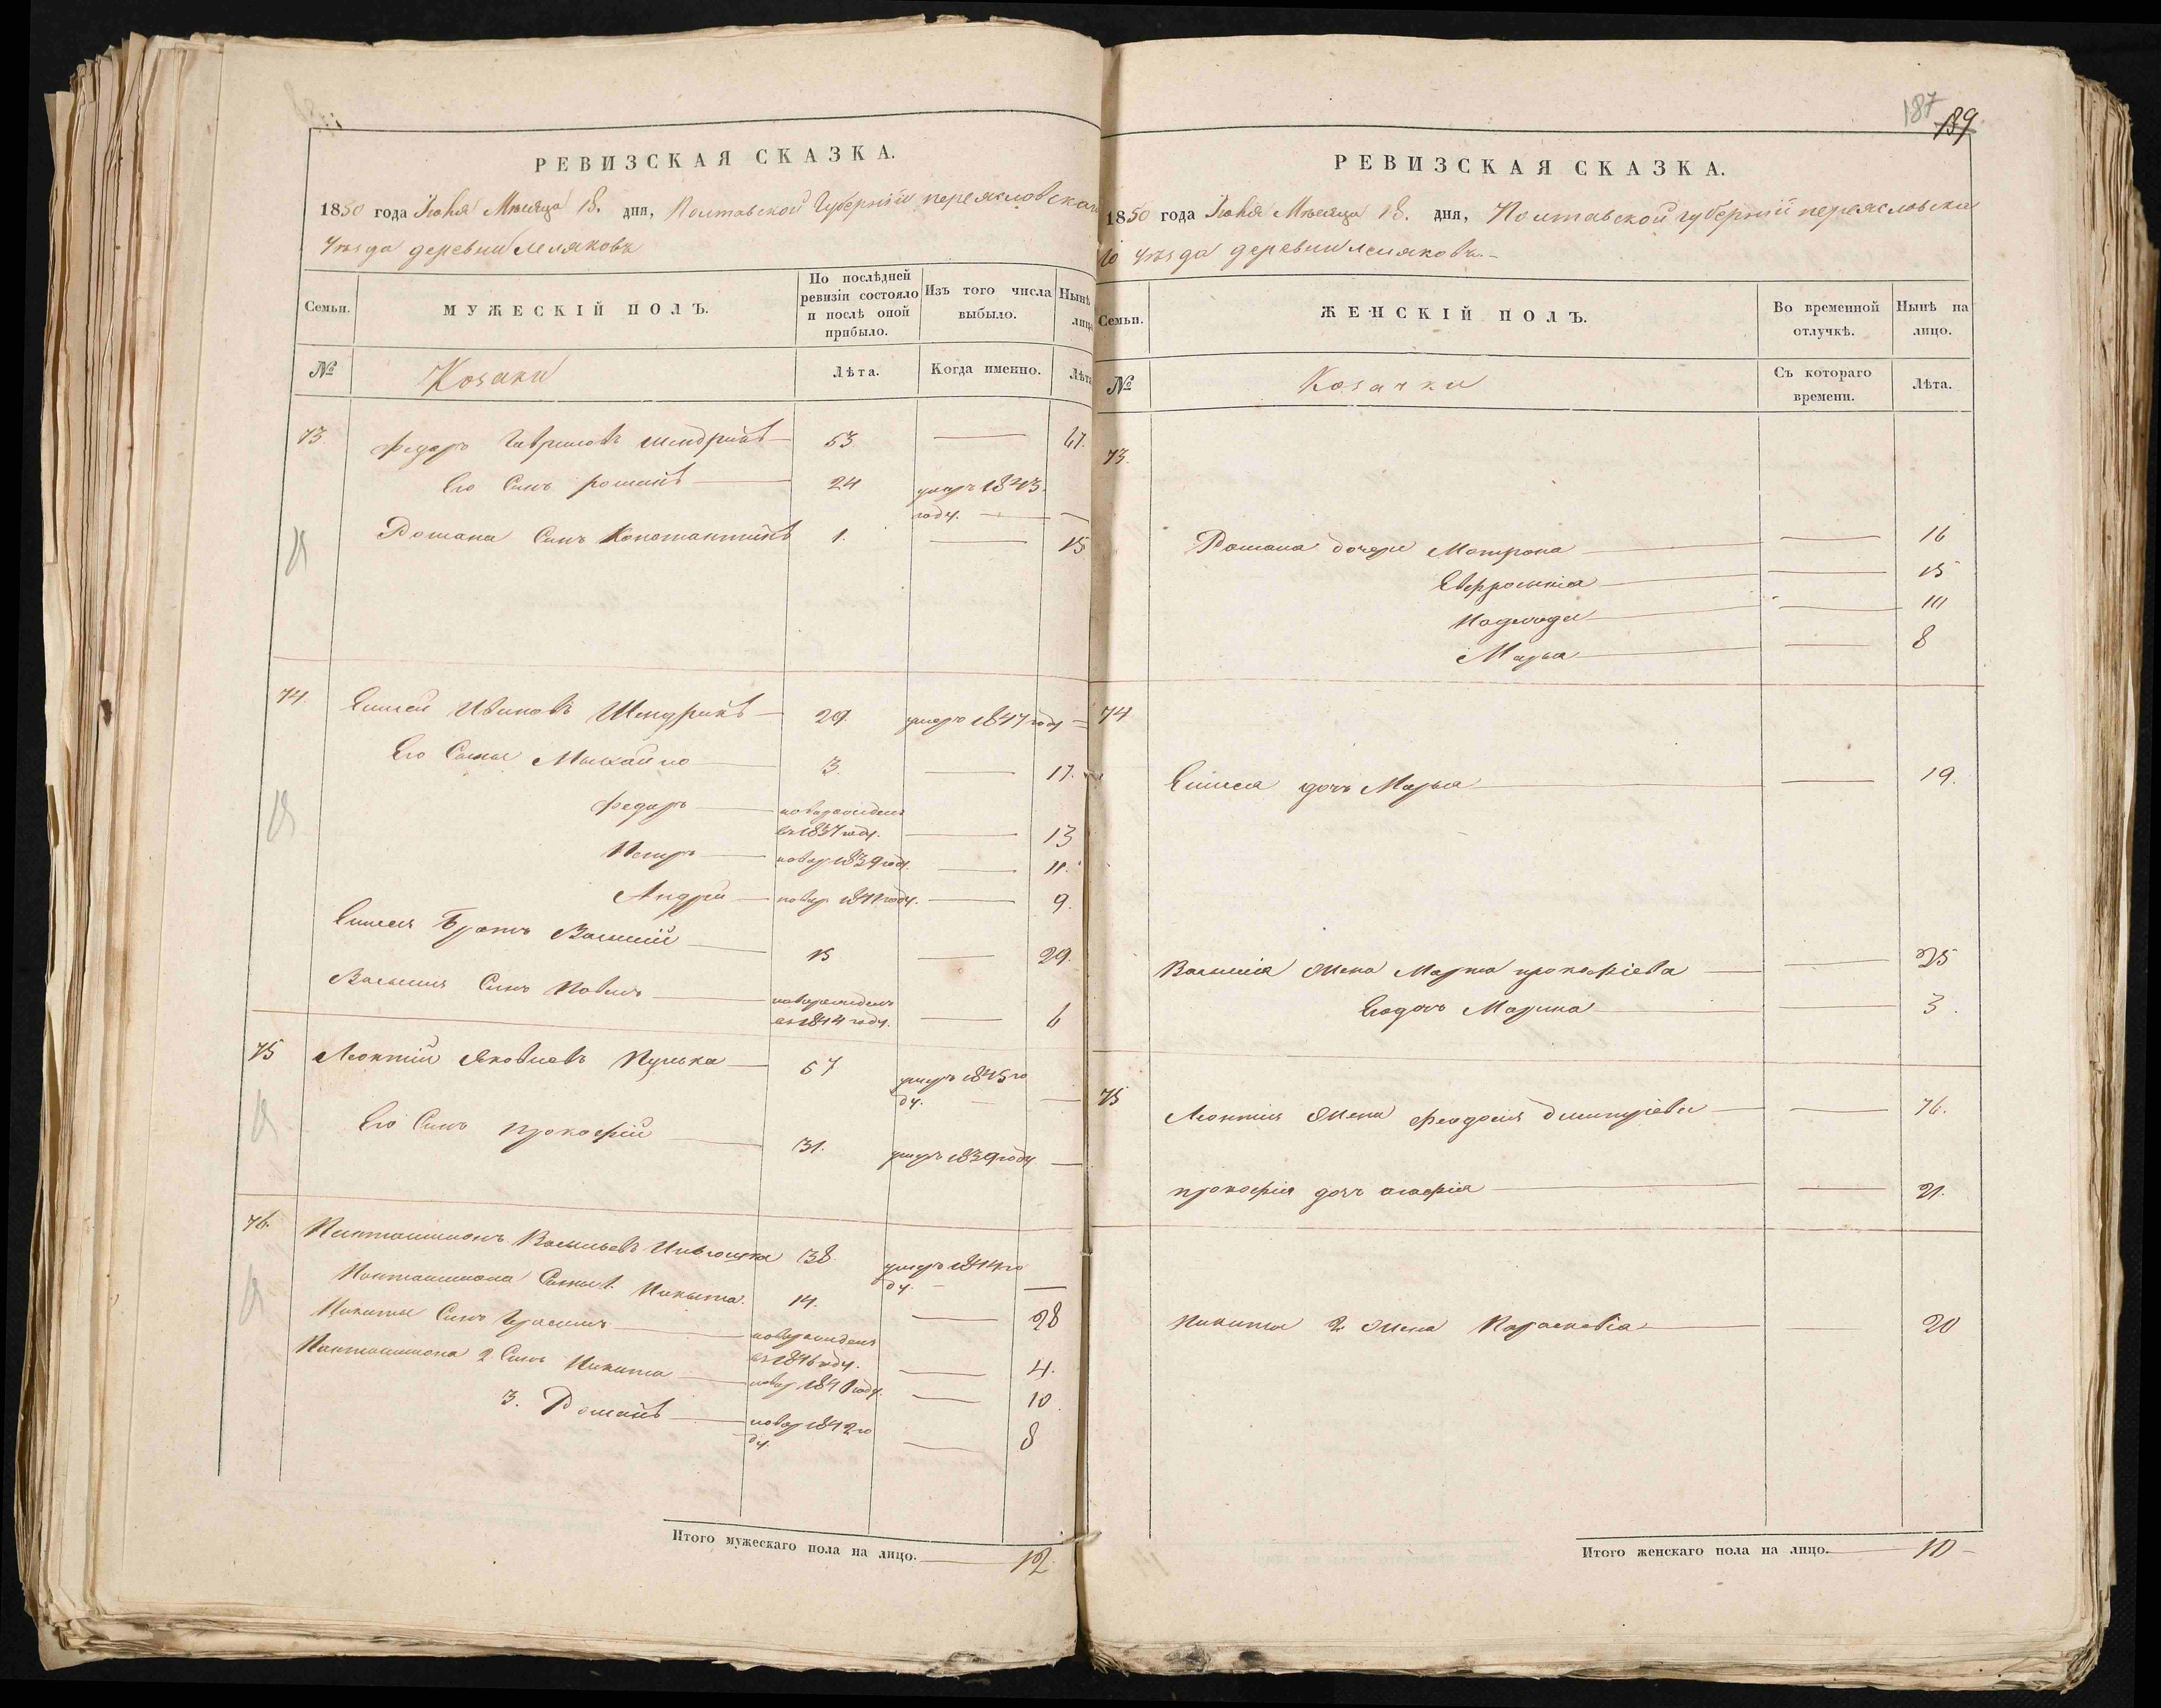 РЕВИЗСКАЯ СКАЗКА.
1850 года Июня Месяца 18. дня, Полтавской Губерніи переясловскаго
Уезда деревни Лемяковъ
Семьи.
МУЖЕСКІЙ ПОЛЪ.
По послѣдней ревизіи состояло и послѣ оной прибыло.
Изъ того числа выбыло.
Нынѣ лицо
№
Козаки
Лѣта.
Когда именно.
Лѣта
73. Федоръ Гавриловъ Шендрикъ 53 47.
Его Сынъ романъ 24 умеръ 1843.
году.
Романа Сынъ Константинъ 1. 15
74. Елисей Ивановъ Шендрикъ 29. умеръ 1847 году
Его Сыны Михайло 3. 17.
Федоръ новорожденъ
въ 1837 году. 13
Петръ новор 1839 году. 11.
Андрей новор 1841 году. 9.
Елисея Братъ Василій 15 29.
Василия Сынъ Павелъ новорожденъ
въ 1844 году. 6
75 Леонтій Яковлевъ Пулька 57 умеръ 1845 го
ду.
Его Сынъ прокофій 31. умеръ 1839 году
76. Пантелимонъ Васильевъ 38. умеръ 1844 го
ду.
Пантелимона Сыны 1. Никита. 14. 28
Никиты Сынъ Герасимъ новорожденъ
въ 1846 году. 4.
Пантелимона 2 Сынъ Никита новор 1840 году. 10.
3. Романъ новор 1842 го
ду. 8
Итого мужескаго пола на лицо. 12.
187
189
РЕВИЗСКАЯ СКАЗКА.
1850 года Июня Месяца 18. дня, Полтавской губерніи переясловска
го Уезда деревни Лемяковъ.
Семьи.
ЖЕНСКІЙ ПОЛЪ.
Во временной отлучкѣ.
Нынѣ на лицо.
№
Козачки
Съ котораго времени.
Лѣта.
73.
Романа дочери Мотрона 16
Евфросинія 15
11
Марья 8
74
Елисея дочь Марья 19.
Василія Жена Марта прокофіева 25
Его дочь Марина 3.
75 Леонтия Жена Феодосия дмитріева 76.
прокофія дочь агафія 21.
Никиты 2 Жена Параскевія 20
Итого женскаго пола на лицо. 10